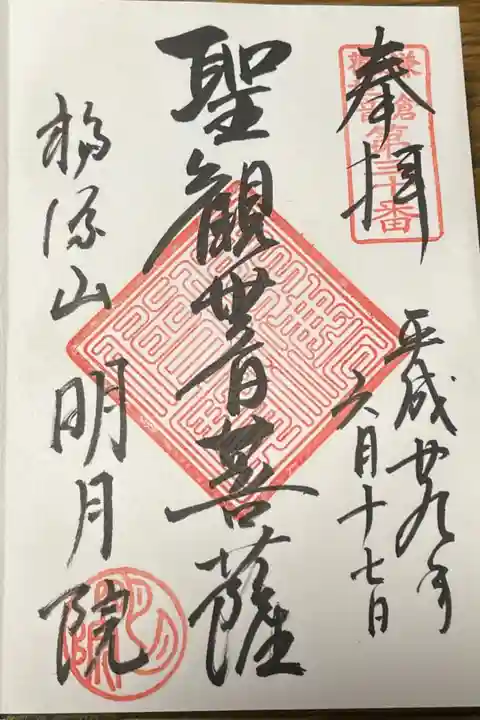 奉拝
鎌倉
第三十番
平成廿九年
六月十七日
聖観世音菩薩
福源山 明月院